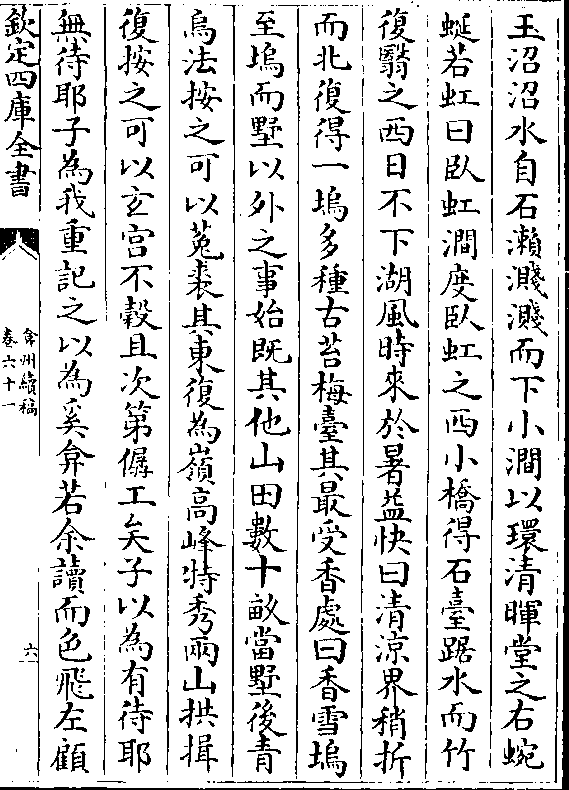 玉沼沼水自石瀨濺濺而下小澗以環清暉堂之右蜿
蜒若虹曰臥虹澗度臥虹之西小橋得石臺踞水而竹
復翳之西日不下湖風時來於暑益快曰清涼界稍折
而北復得一塢多種古苔梅臺其最受香處曰香雪塢
至塢而墅以外之事始既其他山田數十畝當墅後青
烏法按之可以菟裘其東復為嶺高峰特秀兩山拱揖
復按之可以玄宫不榖且次第僝工矣子以為有待耶
無待耶子為我重記之以為奚弇若余讀而色飛左顧
欽定四庫全書
弇州續稿
卷六十一
六